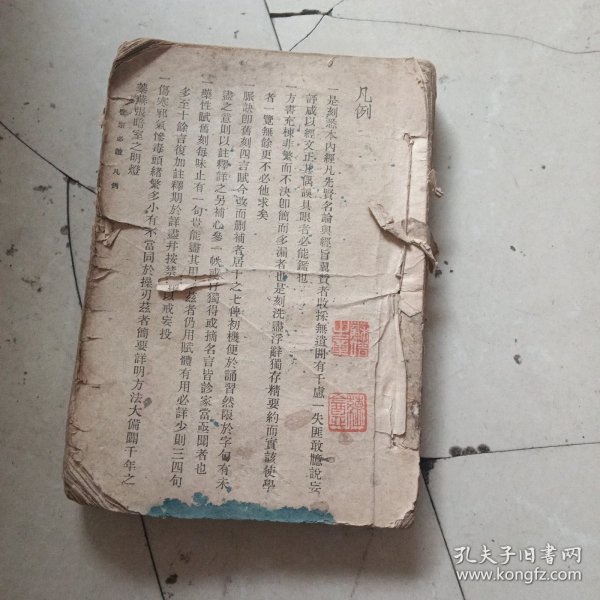 凡例
一是刻悉本內經凡先賢名論與經旨翼贊者收採無遺間有千慮一失匪敢臆說妄
評咸以經文正其偶誤具眼者必能鑑也
一方書充棟非繁而不決卽簡而多漏者也是刻洗盡浮辭獨存精要約而實該使學
者一覽無餘更不必他求矣
一脈訣卽舊刻四言賦今改而刪補者居十之七俾初機便於誦習然限於字句有未
盡之意則以註釋詳之另補心參一帙或行獨得或摘名言皆診家當亟聞者也
一藥性賦舊刻每味止有一句豈能盡其用茲者仍用賦體有用必詳少則三四句
多至十餘言復加註釋期於詳盡幷按禁以戒妄投
一傷寒邪氣慘毒頭緒繁多小有不當同於操刃茲者簡要詳明方法大備闢千年之
蓁蕪張暗室之明燈
必讀 凡例
孔夫子旧书网
www.kongfz.com